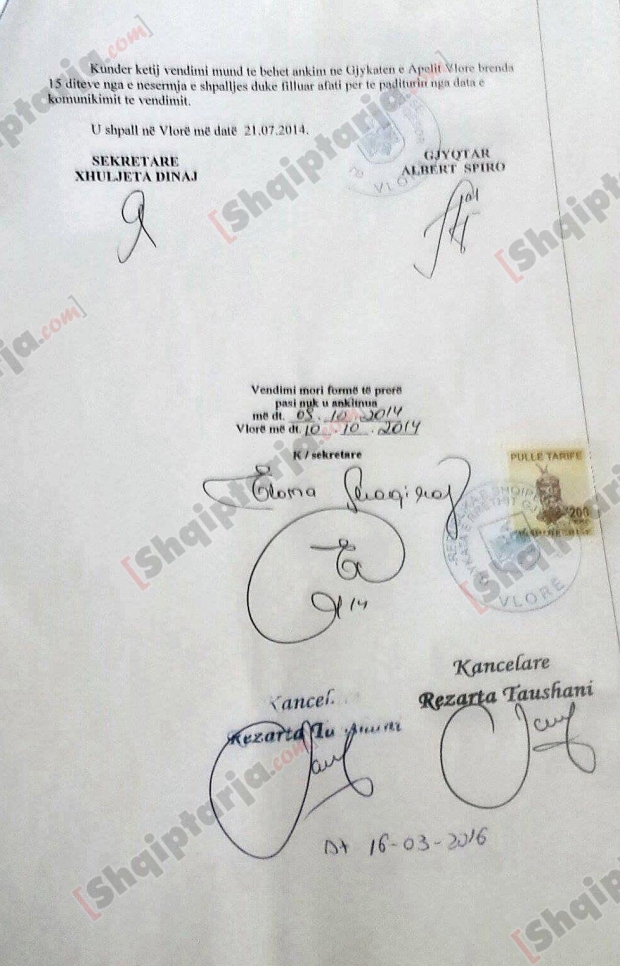 Kunder ketij vendimi mund te behet ankim ne Gjykaten e Apelit Vlore brenda
15 diteve nga e nesermja e shpalljes duke filluar afati per te paditurin nga data e
komunikimit te vendimit.
U shpall në Vlorë më datë 21.07.2014.
SEKRETARE
XHULJETA DINAJ
GJYQTAR
ALBERT SPIRO
VLORË
Vendimi mori formë të prerë
pasi nuk u ankimua
më dt. 08.10.2014
Vlorë më dt. 10.10.2014
K / sekretare
PULLE TARIFE
200
VLORË
Kancelare
Rezarta Taushani
Kancel
Rezarta
Dt 16-03-2016
[Shqiptarja.com]
[Shqiptarja.com]
[Shqiptarja.com]